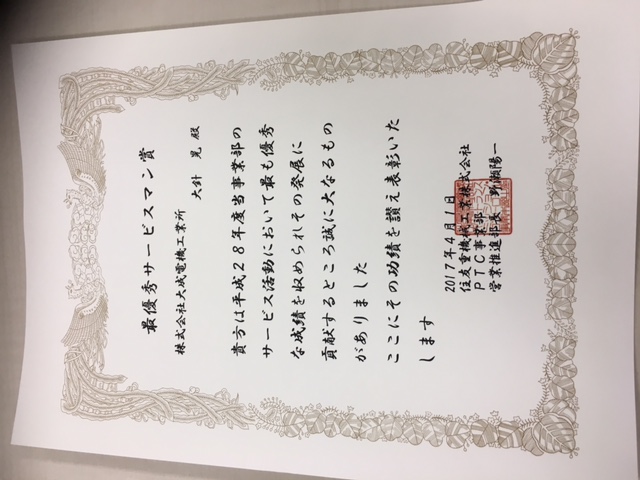 最優秀サービスマン賞
株式会社大成電機工業所
大針 晃 殿
貴方は平成28年度当事業部の
サービス活動において最も優秀
な成績を収められその発展に
貢献するところ誠に大なるもの
がありました
ここにその功績を讃え表彰いた
します
2017年4月1日
住友重機械工業株式会社
PTC事業部
営業推進部長 野瀬陽一